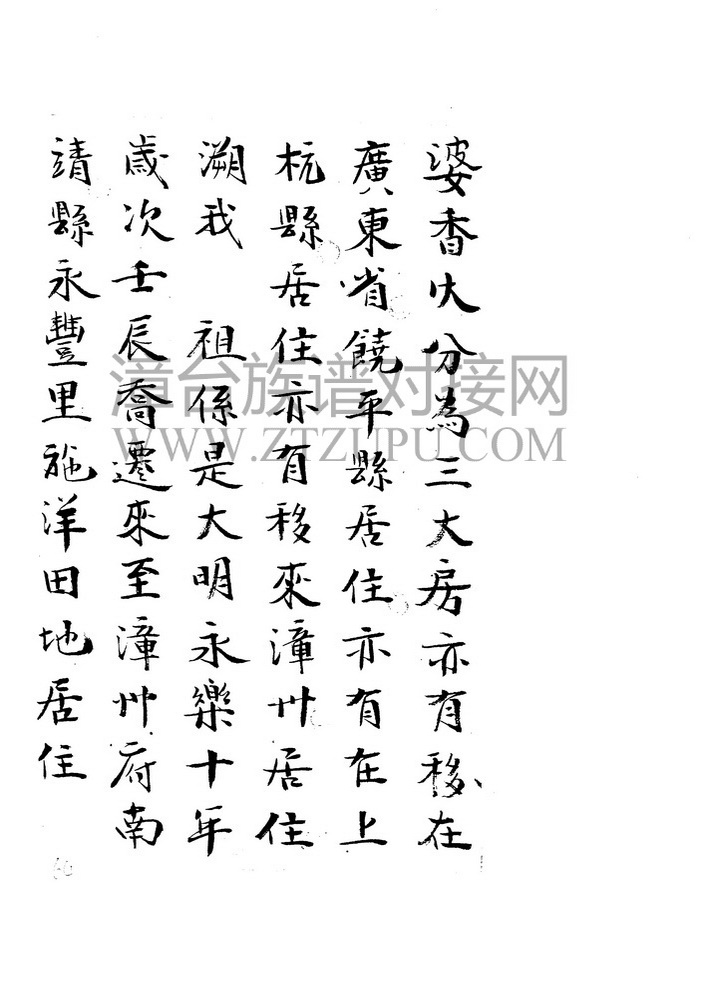 婆香火分為三大房亦有移在
廣東省饒平縣居住亦有在上
杭縣居住亦有移來漳州居住
溯我 祖係是大明永樂十年
歲次壬辰喬遷來至漳州府南
靖縣永豐里施洋田地居住
漳台族谱对接网
WWW.ZTZUPU.COM